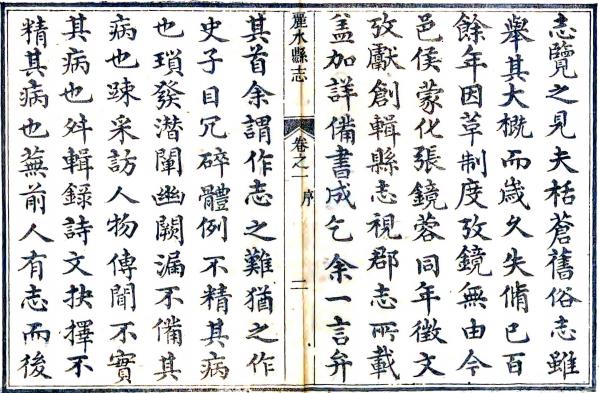 志覽之見夫栝蒼舊俗志雖
舉其大概而歲久失脩已百
餘年因革制度攷鏡無由今
邑侯蒙化張鏡蓉同年徵文
攷獻創輯縣志視郡志所載
益加詳備書成乞余一言弁
麗水縣志
卷之一
序
二
其首余謂作志之難猶之作
史子目冗碎體例不精其病
也瑣發潛闡幽闕漏不備其
病也踈采訪人物傳聞不實
其病也舛輯錄詩文抉擇不
精其病也蕪前人有志而後